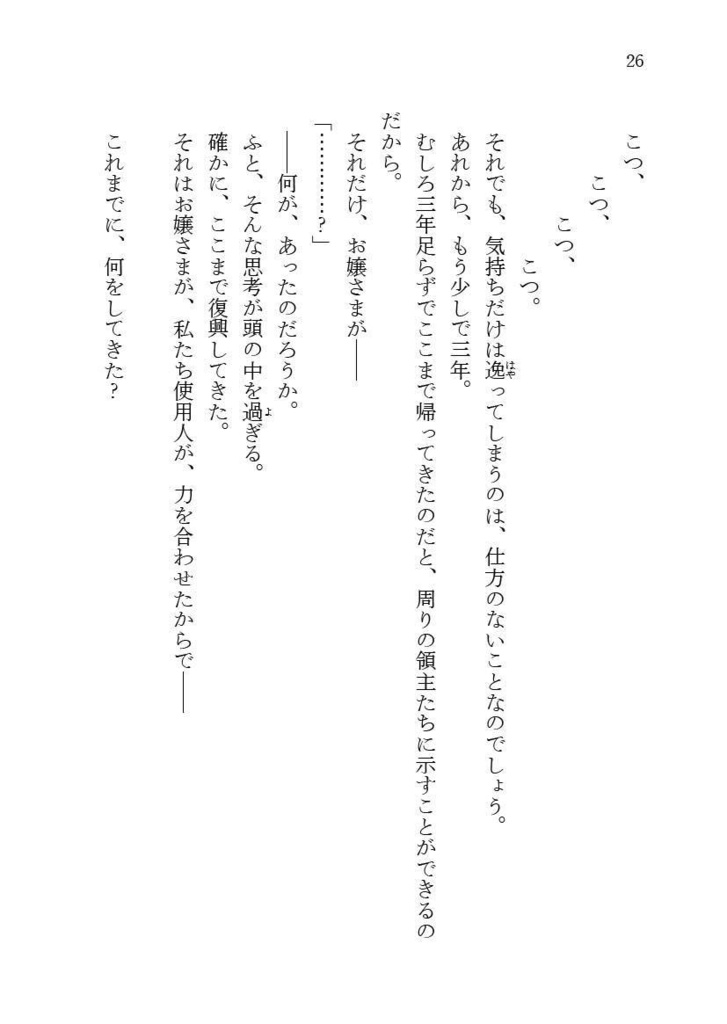 26
こつ、
こつ、
こつ、
こつ。
それでも、気持ちだけは逸ってしまうのは、仕方のないことなのでしょう。
あれから、もう少しで三年。
むしろ三年足らずでここまで帰ってきたのだと、周りの領主たちに示すことができるの
だから。
それだけ、お嬢さまが――
「…………?」
――何が、あったのだろうか。
ふと、そんな思考が頭の中を過ぎる。
確かに、ここまで復興してきた。
それはお嬢さまが、私たち使用人が、力を合わせたからで――
これまでに、何をしてきた?